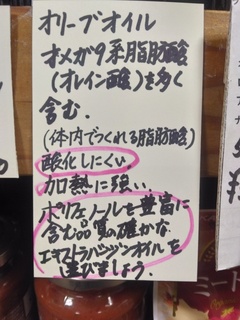 オリーブオイル
オメガ9系脂肪酸
(オレイン酸)を多く
含む.
(体内でつくれる脂肪酸)
酸化しにくい
加熱に強い.
ポリフェノールを豊富に
含む品質の確かな
エキストラバージンオイルを
選びましょう.
ミート